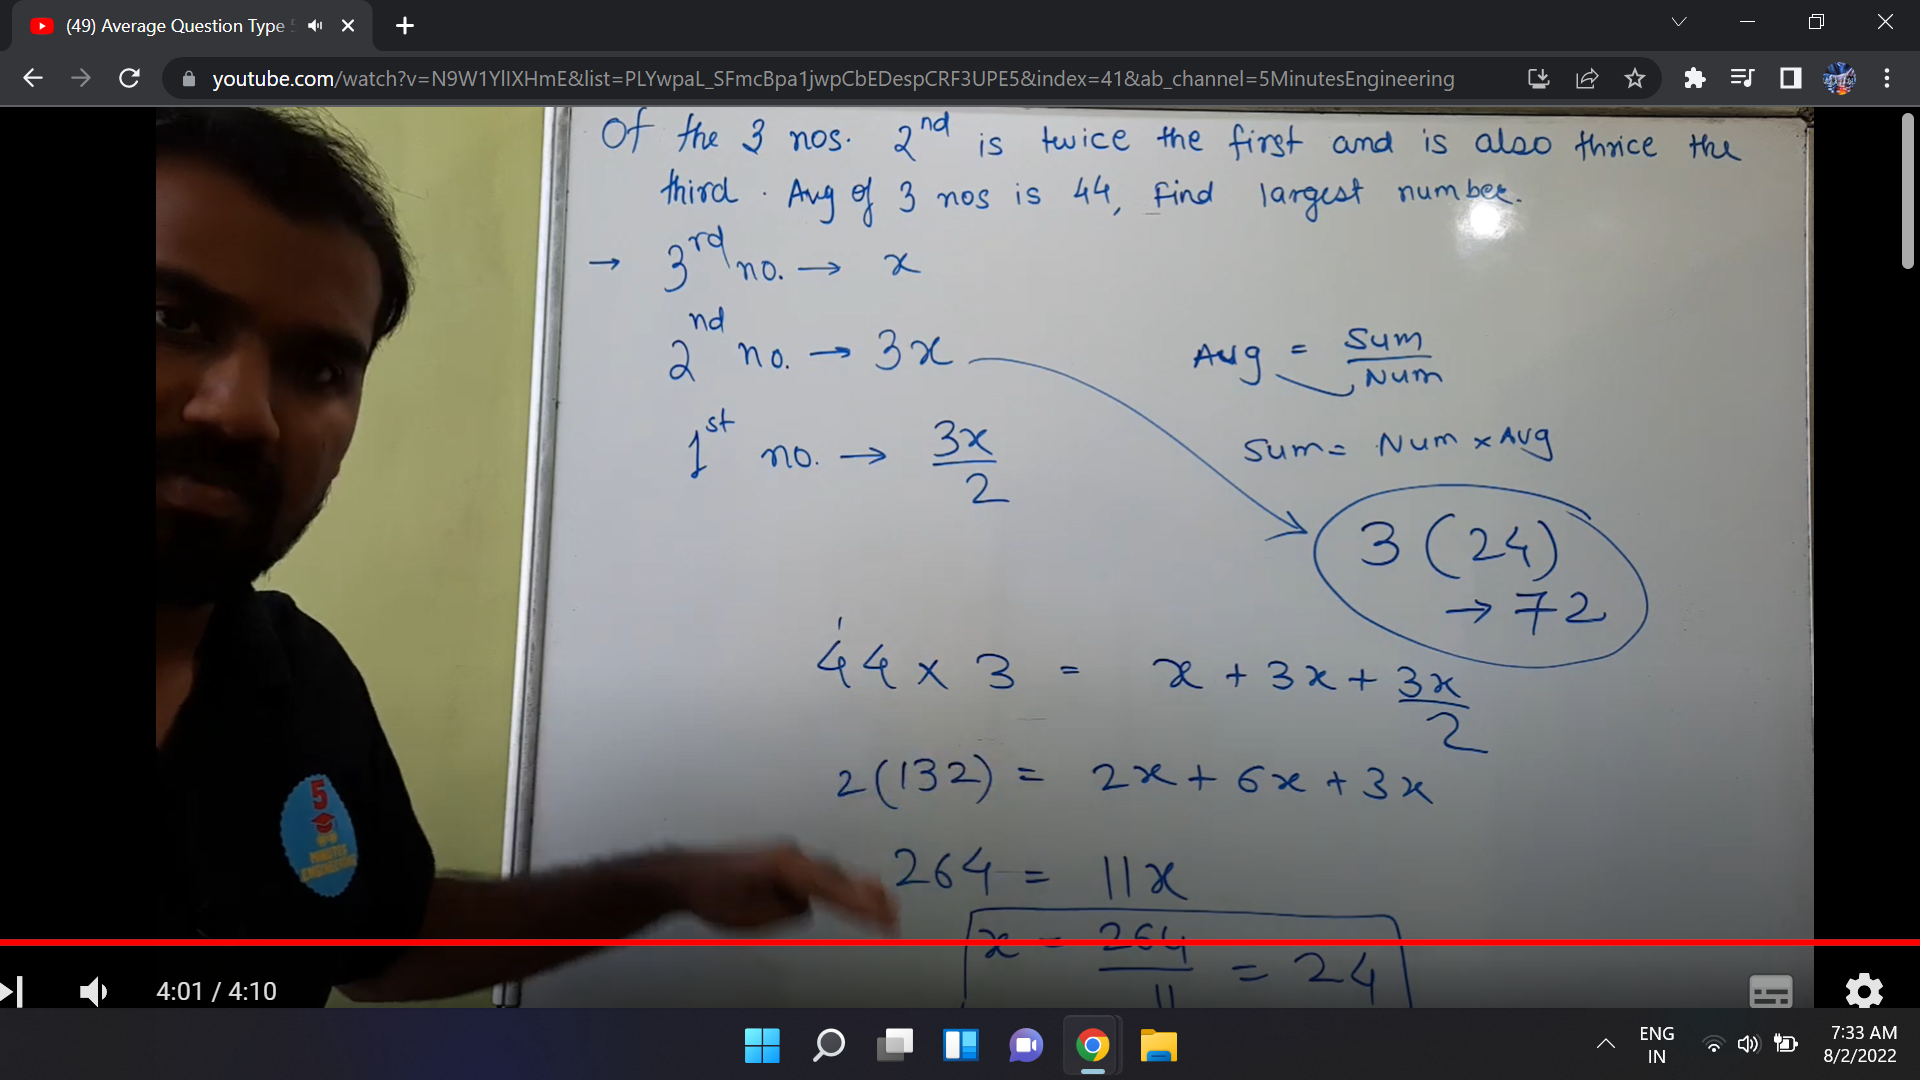 (49) Average Question Type
youtube.com/watch?v=N9W1YlIXHmE&list=PLYwpaL_SFmcBpa1jwpCbEDespCRF3UPE5&index=41&ab_channel=5MinutesEngineering
Of the 3 nos. 2nd is twice the first and is also thrice the
third. Avg of 3 nos is 44, Find largest number.
→ 3rd no. → x
2nd no. → 3x
Avg = Sum/Num
1st no. → 3x/2
Sum = Num × Avg
3(24)
→ 72
44 × 3 = x + 3x + 3x/2
2(132) = 2x + 6x + 3x
264 = 11x
x = 264/11 = 24
5
MINUTES
ENGINEERING
4:01 / 4:10
ENG
IN
7:33 AM
8/2/2022